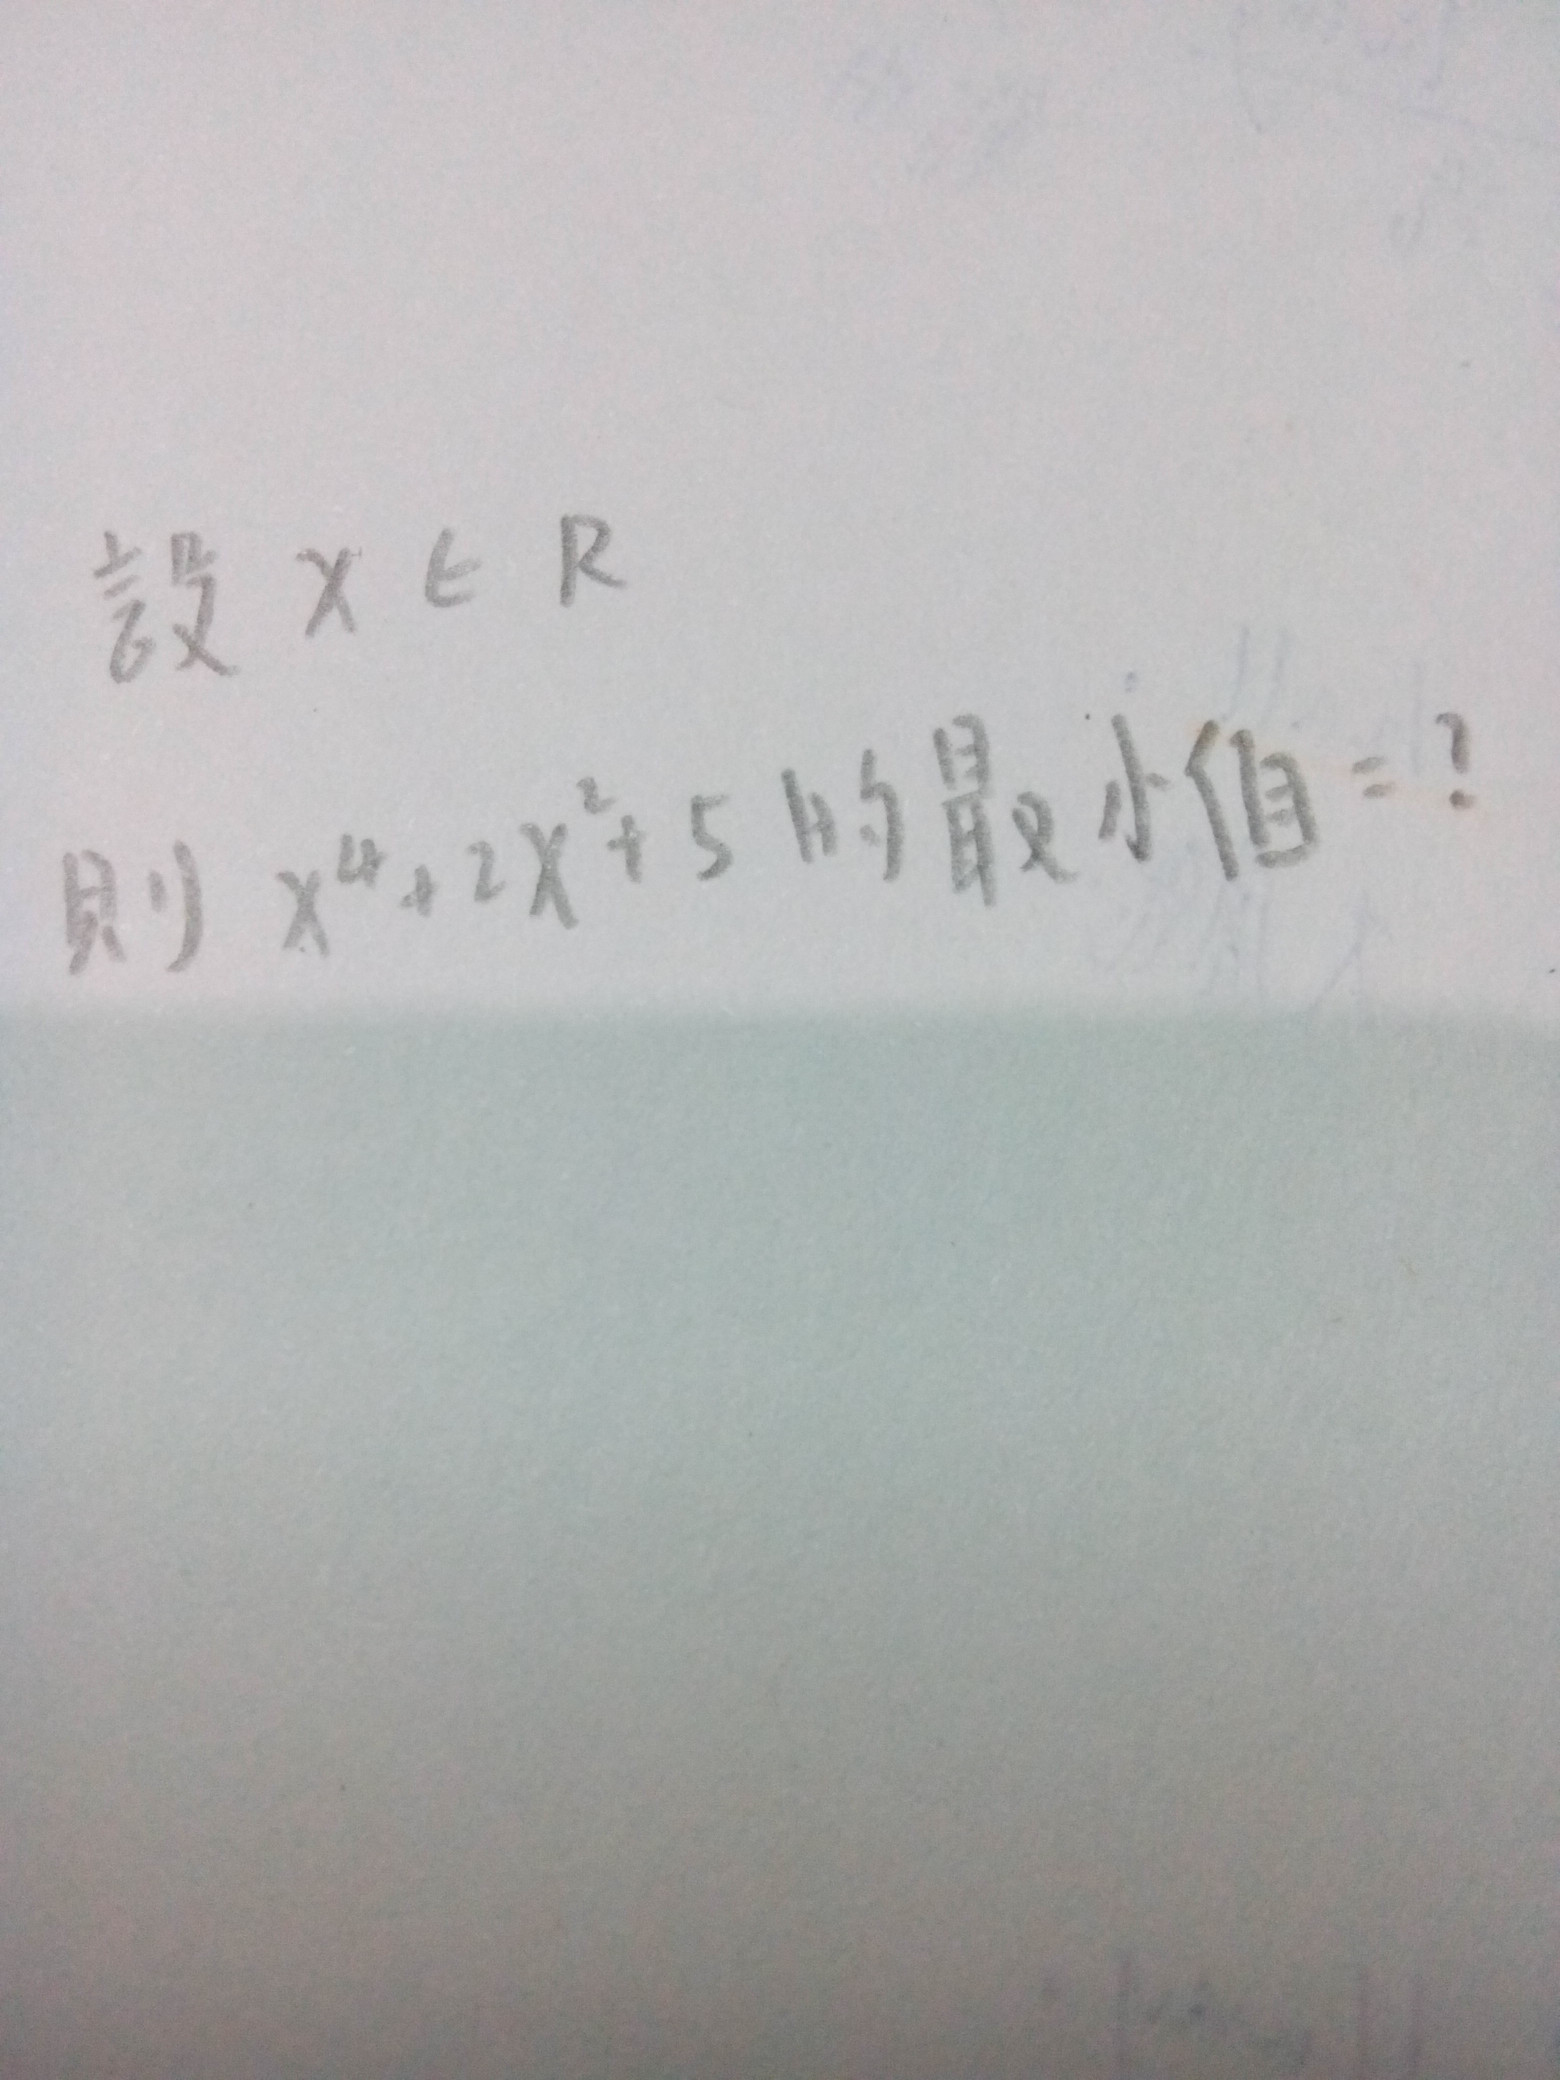 設 x ∈ R
則 x⁴+2x²+5 的最小值=?